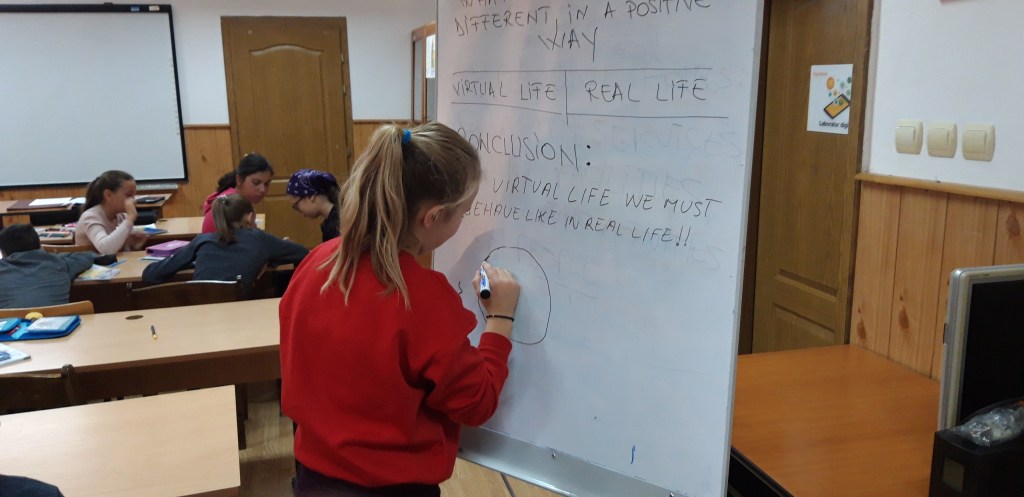 DIFFERENT, IN A POSITIVE
WAY
VIRTUAL LIFE REAL LIFE
CONCLUSION:
VIRTUAL LIFE WE MUST
BEHAVE LIKE IN REAL LIFE!!
Laborator digi